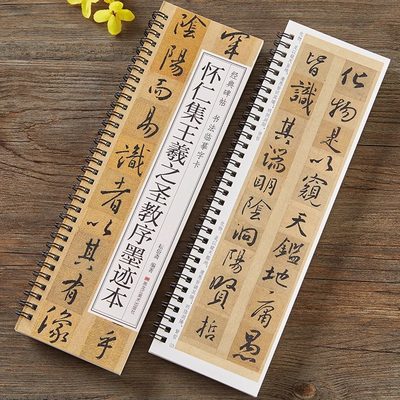 经典碑帖 书法临摹字卡
怀仁集王羲之圣教序墨迹本
编著
乎
陰陽而易識者以其有像
化物是以窺天鑑地庸愚
皆識其端明陰洞陽賢哲